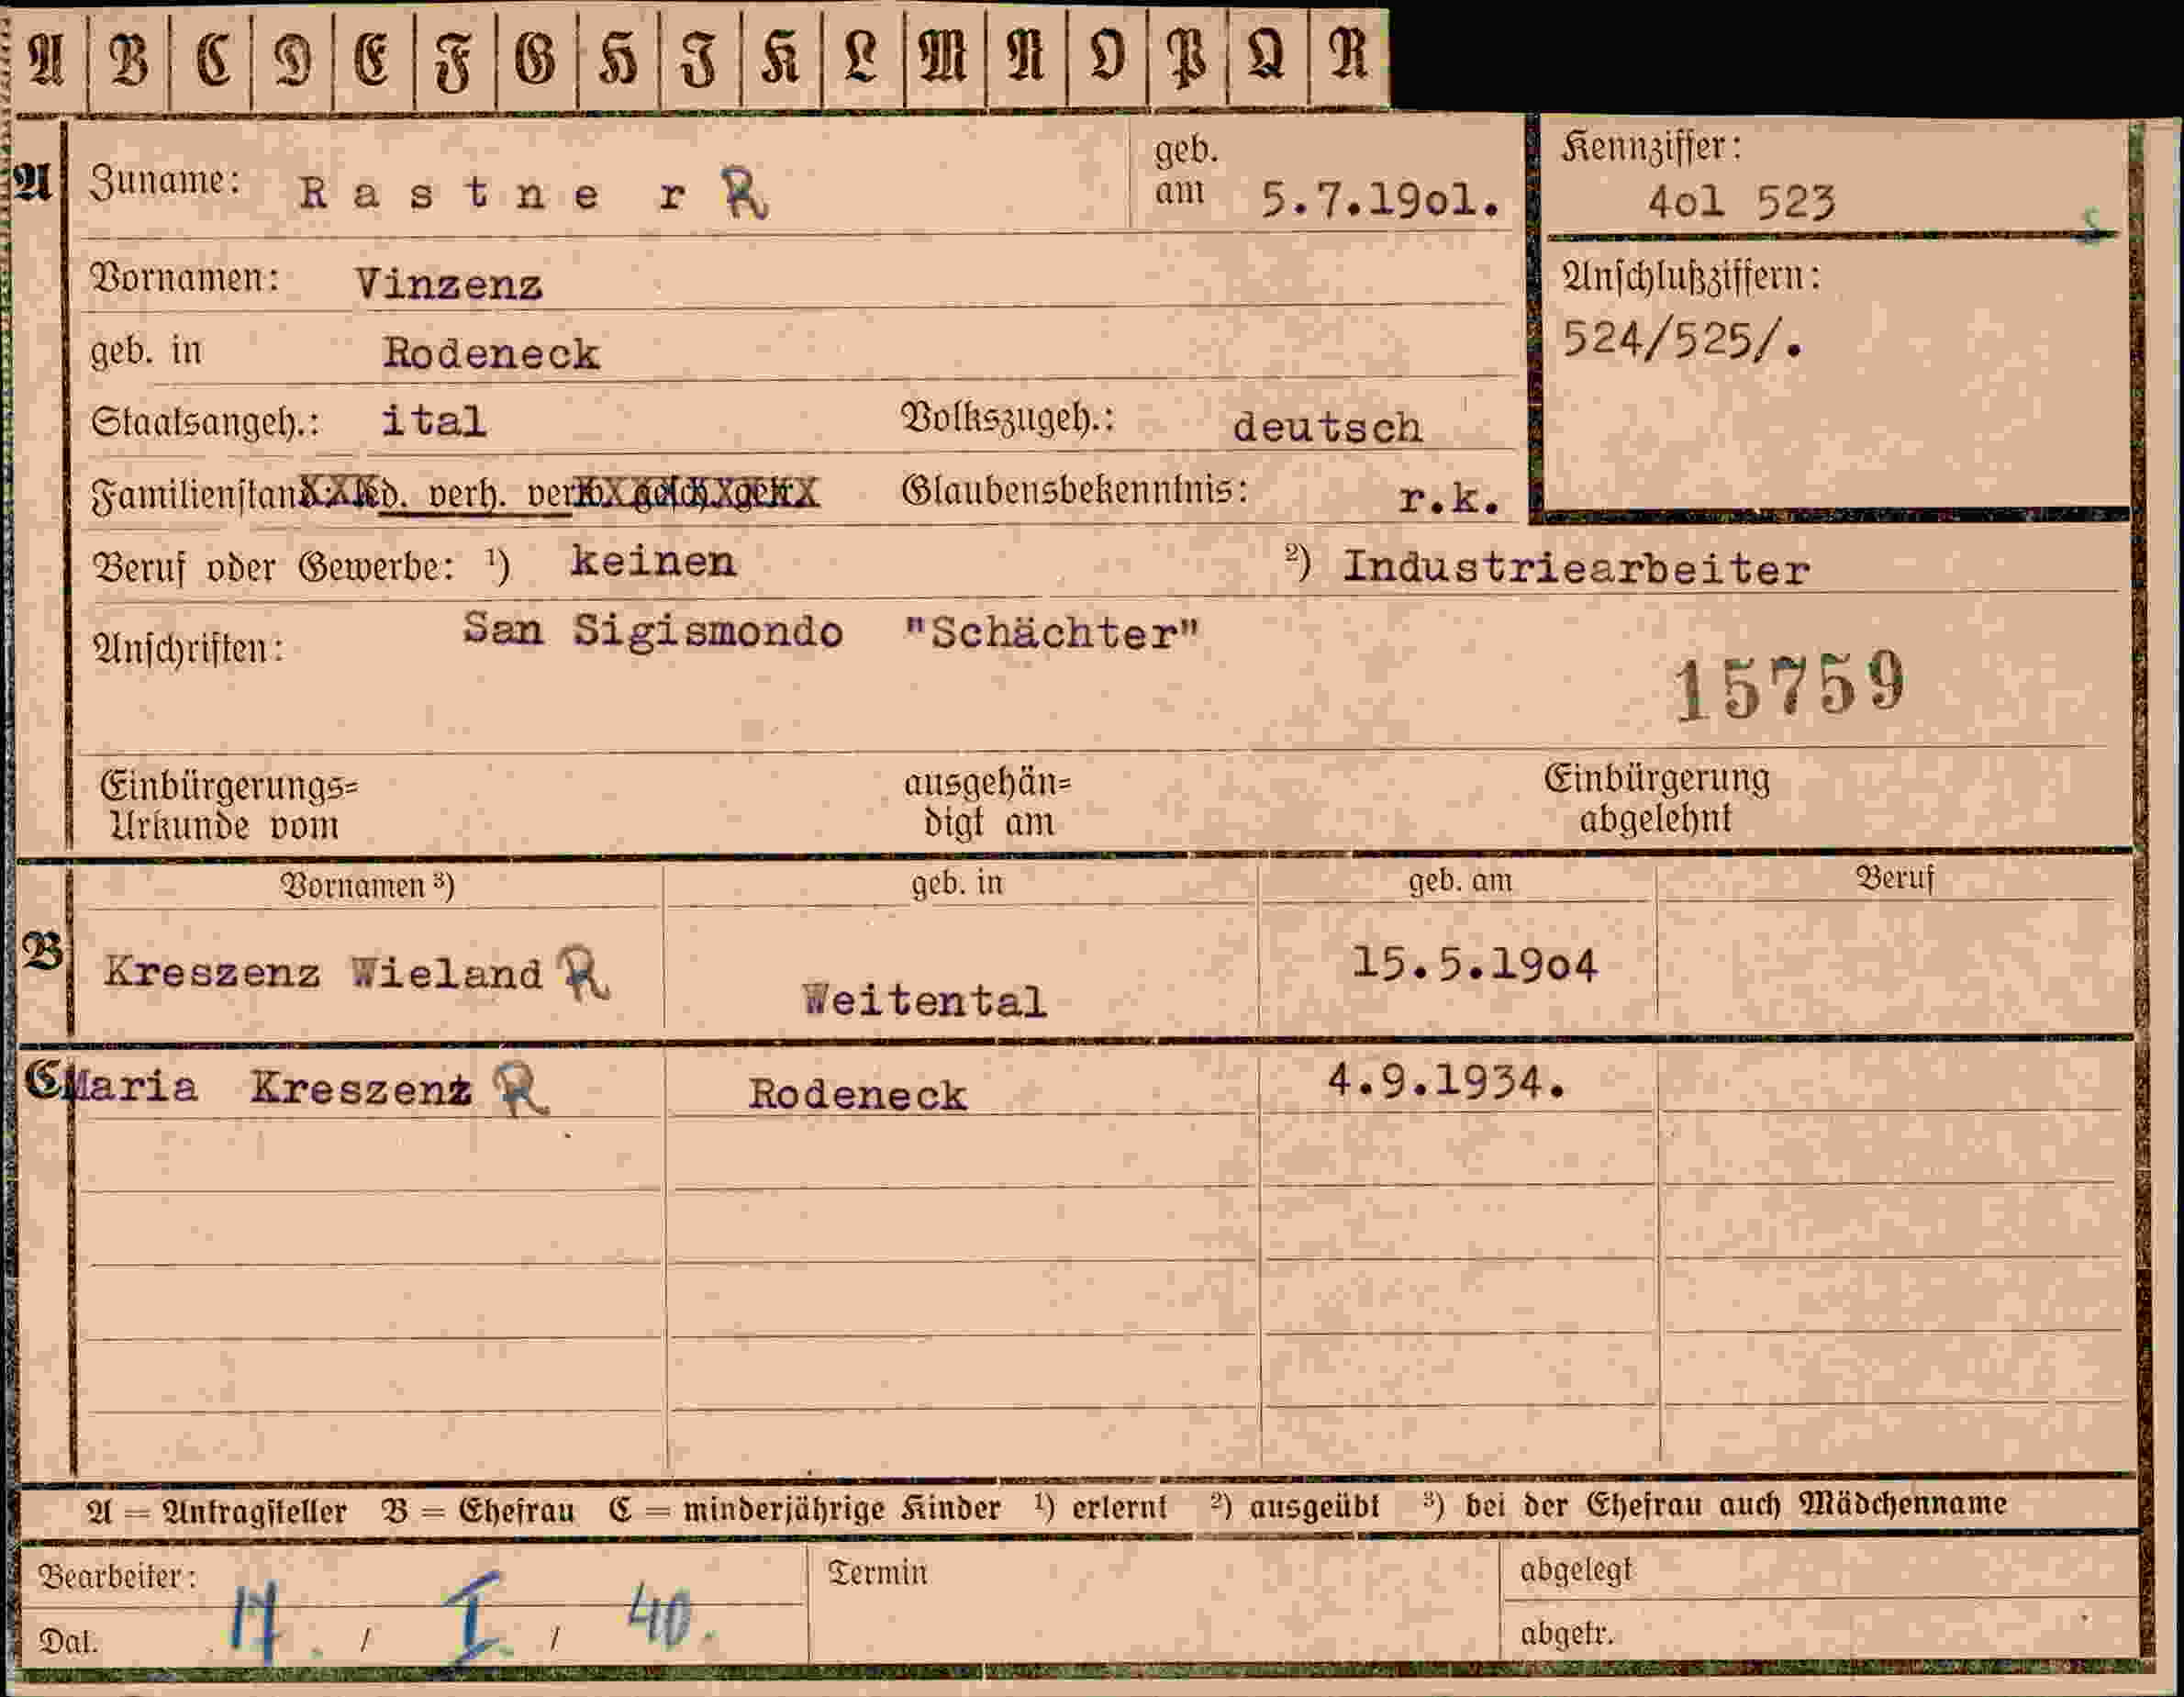 A B C D E F G H I K L M N O P Q R
A Zuname: R a s t n e r R geb. am 5.7.19o1.
Kennziffer: 4o1 523
Vornamen: Vinzenz
Anschlußziffern:
524/525/.
geb. in Rodeneck
Staatsangeh.: ital Volkszugeh.: deutsch
Familienstan verh. Glaubensbekenntnis: r.k.
Beruf oder Gewerbe: ¹) keinen ²) Industriearbeiter
Anschriften: San Sigismondo "Schächter"
15759
Einbürgerungs= Urkunde vom ausgehän= digt am Einbürgerung abgelehnt
Vornamen ³) geb. in geb. am Beruf
B Kreszenz Wieland R Weitental 15.5.19o4
C Maria Kreszenz R Rodeneck 4.9.1934.
A = Antragsteller B = Ehefrau C = minderjährige Kinder ¹) erlernt ²) ausgeübt ³) bei der Ehefrau auch Mädchenname
Bearbeiter: Termin abgelegt
Dat. 17. / I. / 40. abgetr.